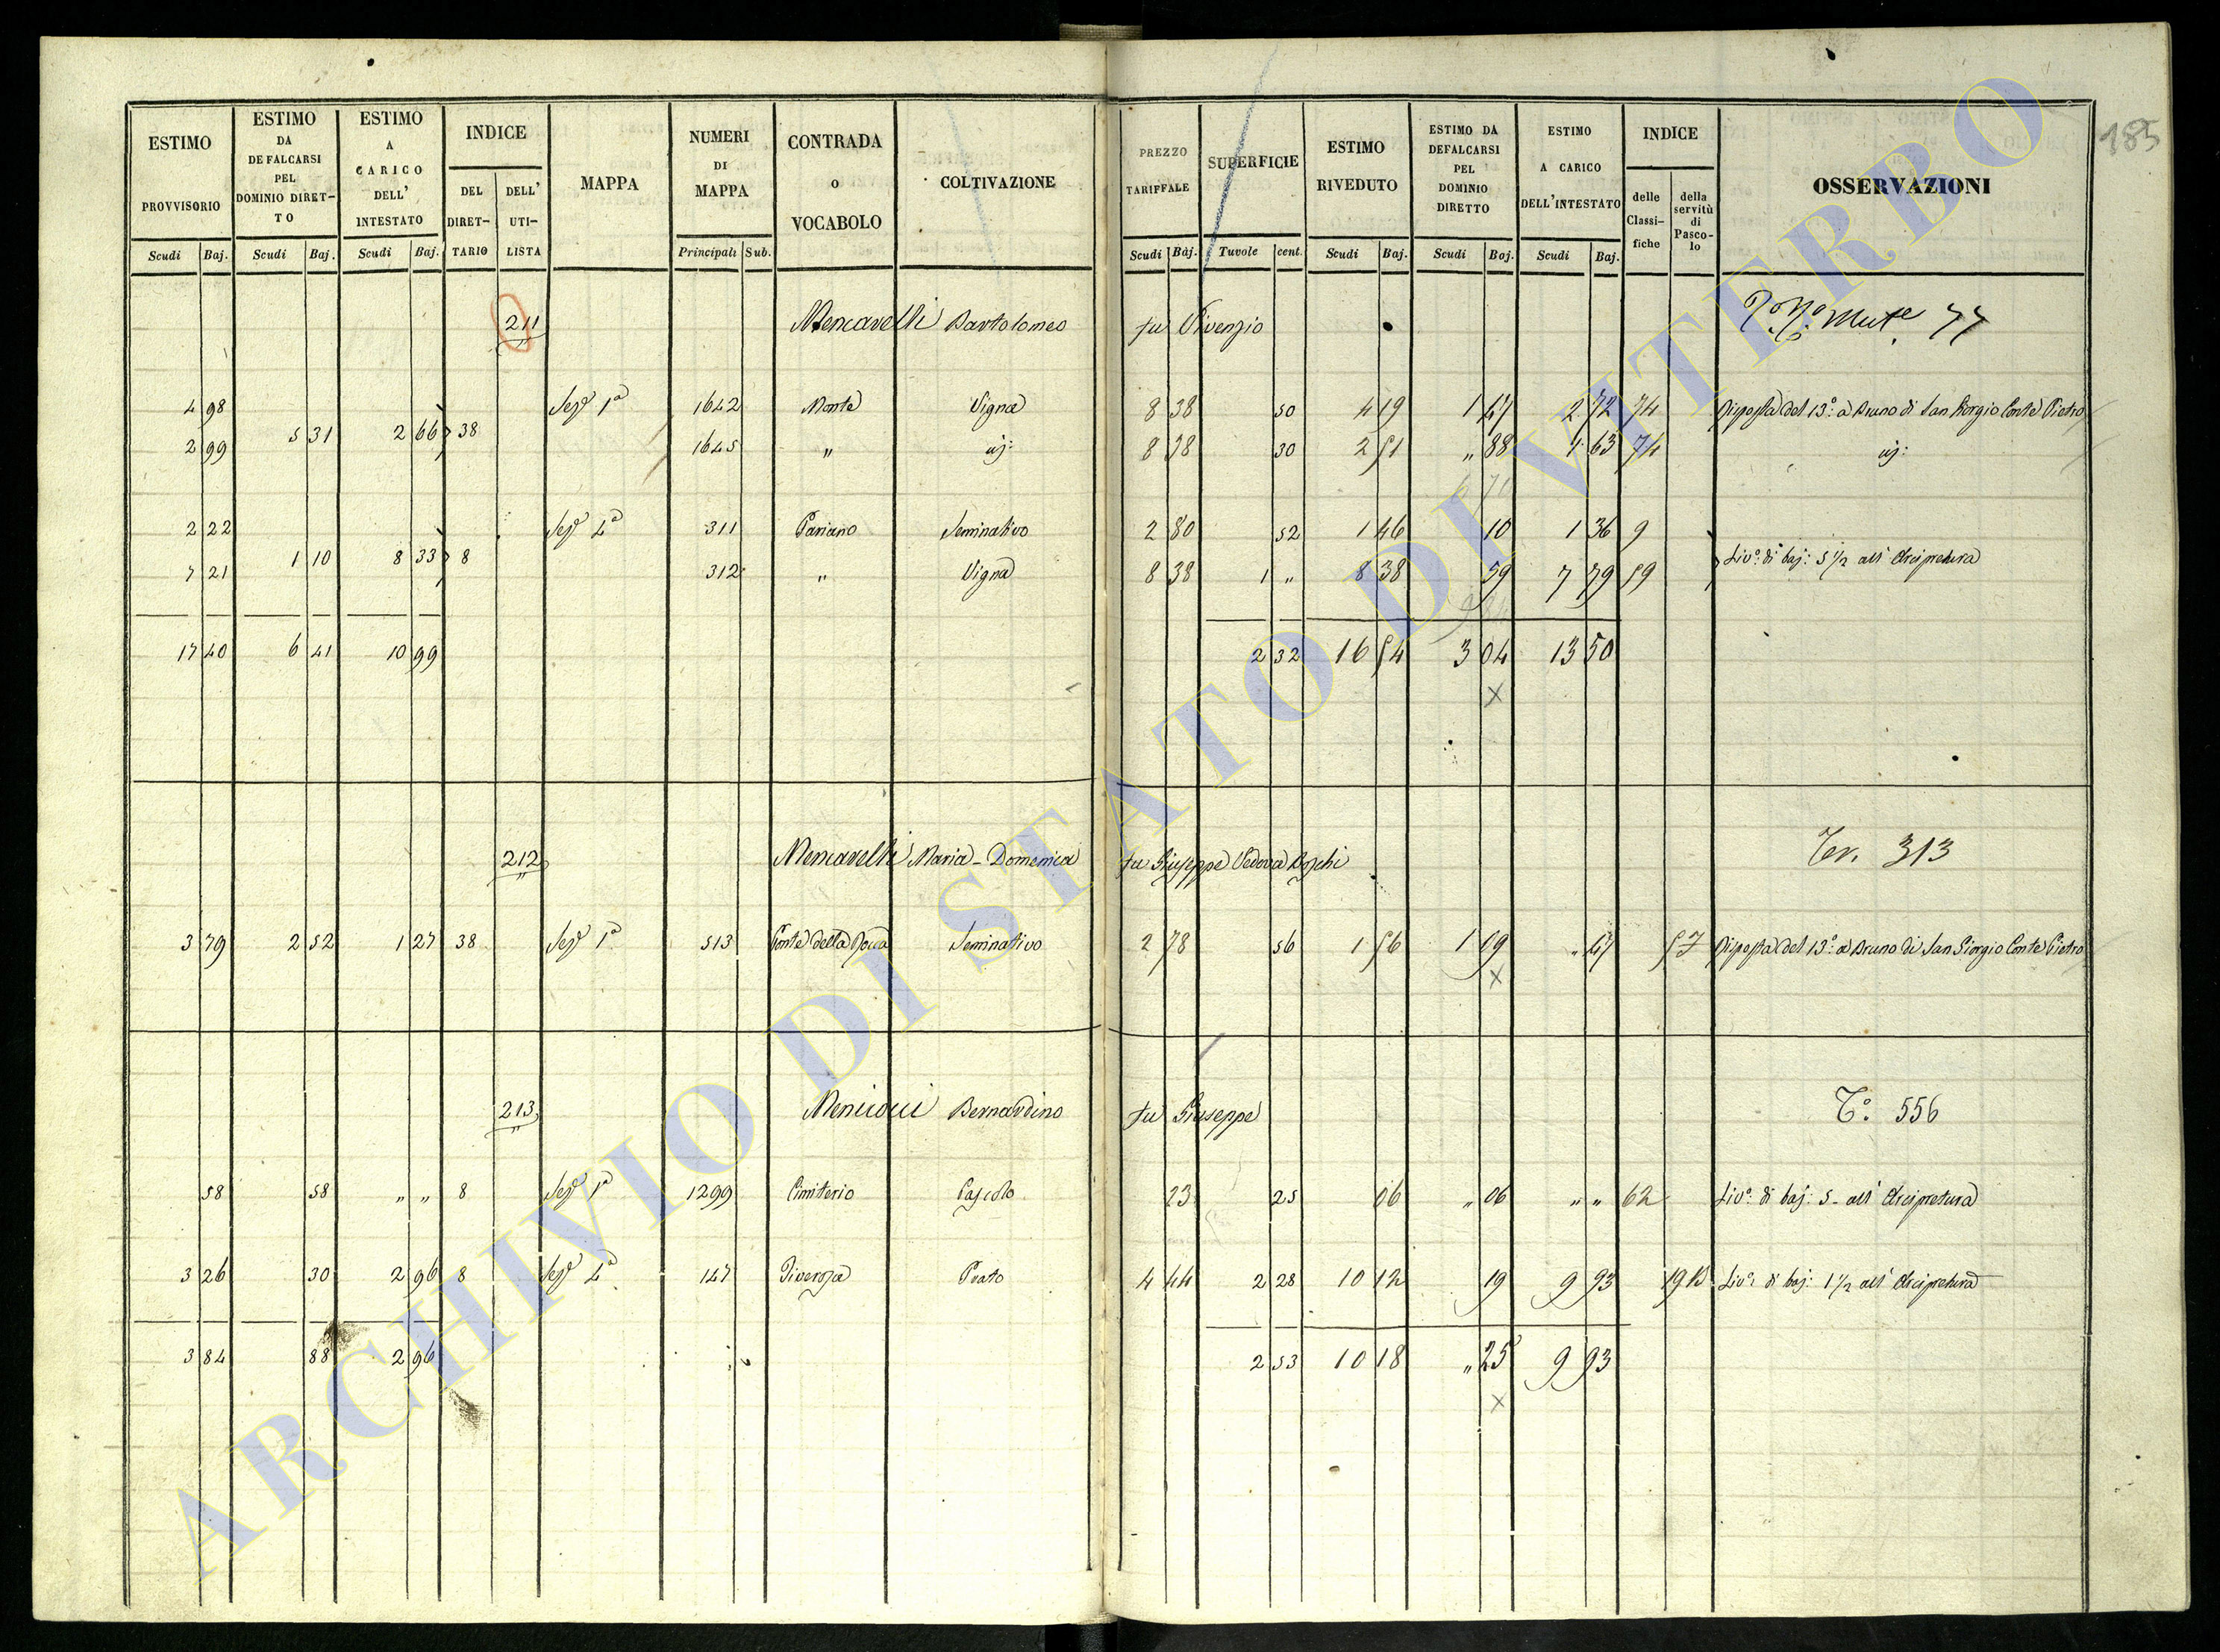 185
ESTIMO PROVVISORIO | ESTIMO DA DEFALCARSI PEL DOMINIO DIRETTO | ESTIMO A CARICO DELL' INTESTATO | INDICE | MAPPA | NUMERI DI MAPPA | CONTRADA O VOCABOLO | COLTIVAZIONE | PREZZO TARIFFALE | SUPERFICIE | ESTIMO RIVEDUTO | ESTIMO DA DEFALCARSI PEL DOMINIO DIRETTO | ESTIMO A CARICO DELL'INTESTATO | INDICE | OSSERVAZIONI
DEL DIRETTARIO | DELL' UTILISTA | delle Classifiche | della servitù di Pascolo
Scudi | Baj. | Scudi | Baj. | Scudi | Baj. | Principali | Sub. | Scudi | Baj. | Tavole | cent. | Scudi | Baj. | Scudi | Baj. | Scudi | Baj.
211 Mencarelli Bartolomeo fu Vivenzio 77
4 98 Sez.e 1a 1642 Monte Vigna 8 38 50 4 19 1 47 2 72 74 Risposta del 13.o a Bruno di San Giorgio Conte Pietro
5 31 2 66 38
2 99 1645 " " 8 38 30 2 51 " 88 1 63 74
2 22 Sez.e 4a 311 Pariano Seminativo 2 80 52 1 46 10 1 36 9
1 10 8 33 8 Liv.o di baj: 5 1/2 all' Arcipretura
7 21 312 " Vigna 8 38 1 " 8 38 59 7 79 59
17 40 6 41 10 99 2 32 16 54 3 04 13 50
x
212 Mencarelli Maria-Domenica fu Giuseppe Vedova 313
3 79 2 52 1 27 38 Sez.e 1a 513 Fonte della Rocca Seminativo 2 78 56 1 56 1 09 " 47 57 Risposta del 13.o a Bruno di San Giorgio Conte Pietro
x
213 Menicocci Bernardino fu Giuseppe T.o 556
58 58 " " 8 Sez.e 1a 1299 Cimiterio Pascolo 23 25 06 " 06 " " 62 Liv.o di baj: 5 - all' Arcipretura
3 26 30 2 96 8 Sez.e 4a 147 Prato 4 44 2 28 10 12 19 9 93 19 B Liv.o di baj: 1 1/2 all' Arcipretura
3 84 88 2 96 2 53 10 18 " 25 9 93
x
ARCHIVIO DI STATO DI VITERBO